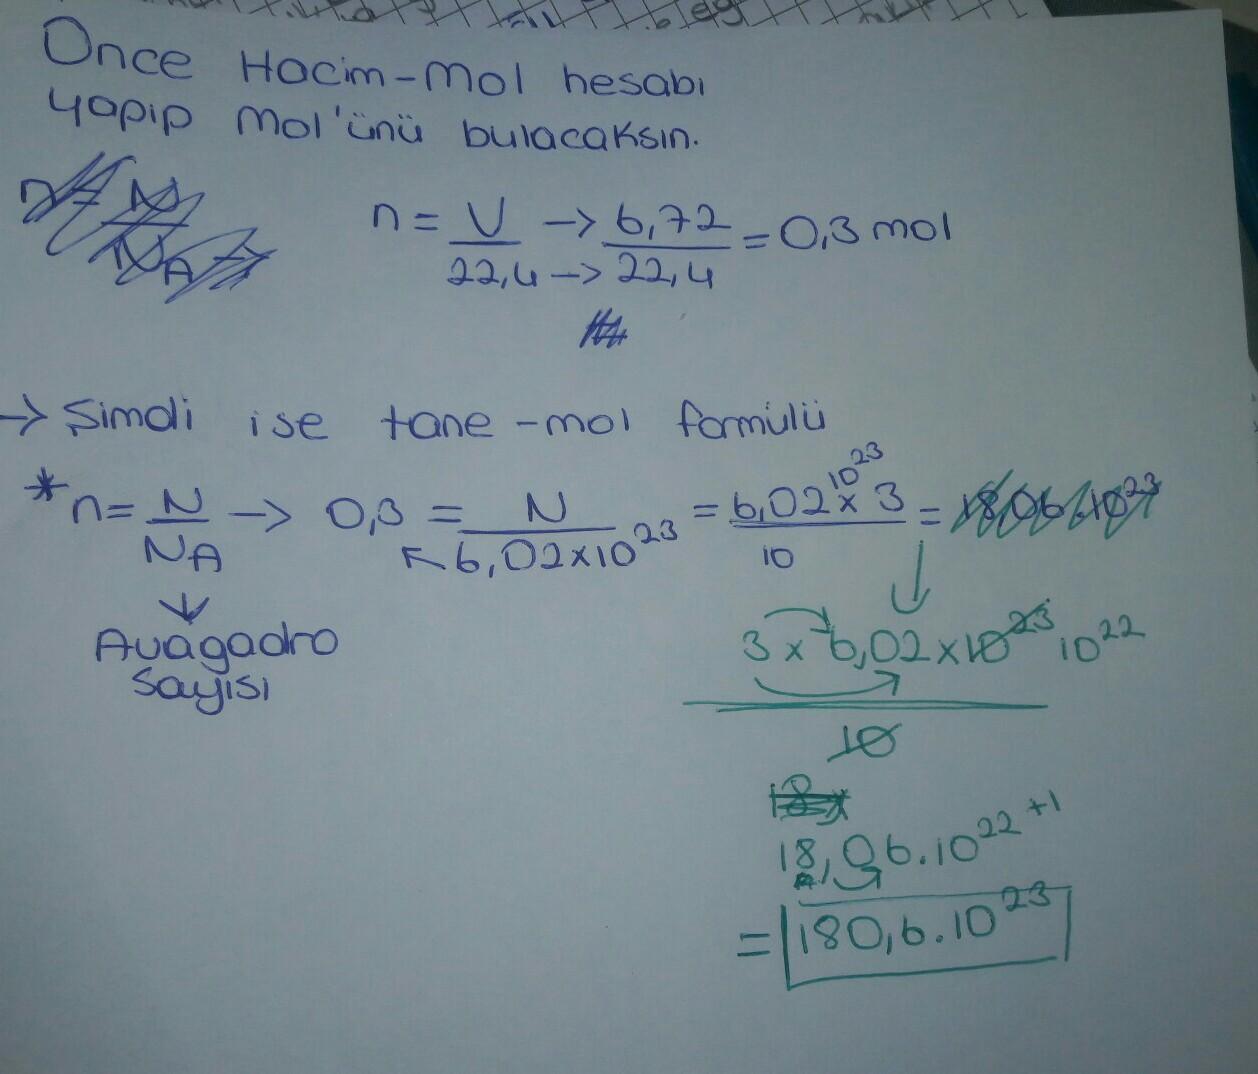 Önce Hacim-Mol hesabı
yapıp Mol'ünü bulacaksın.
n = V/22,4 -> 6,72/22,4 = 0,3 mol
-> Şimdi ise tane-mol formülü
* n = N/NA -> 0,3 = N/6,02x10²³ = 6,02x10²³ 3/10 = 18,06.10²³
Avagadro
sayısı
3 x 6,02 x 10²³ 10²²
10
18,06.10²² +1
= 180,6.10²³